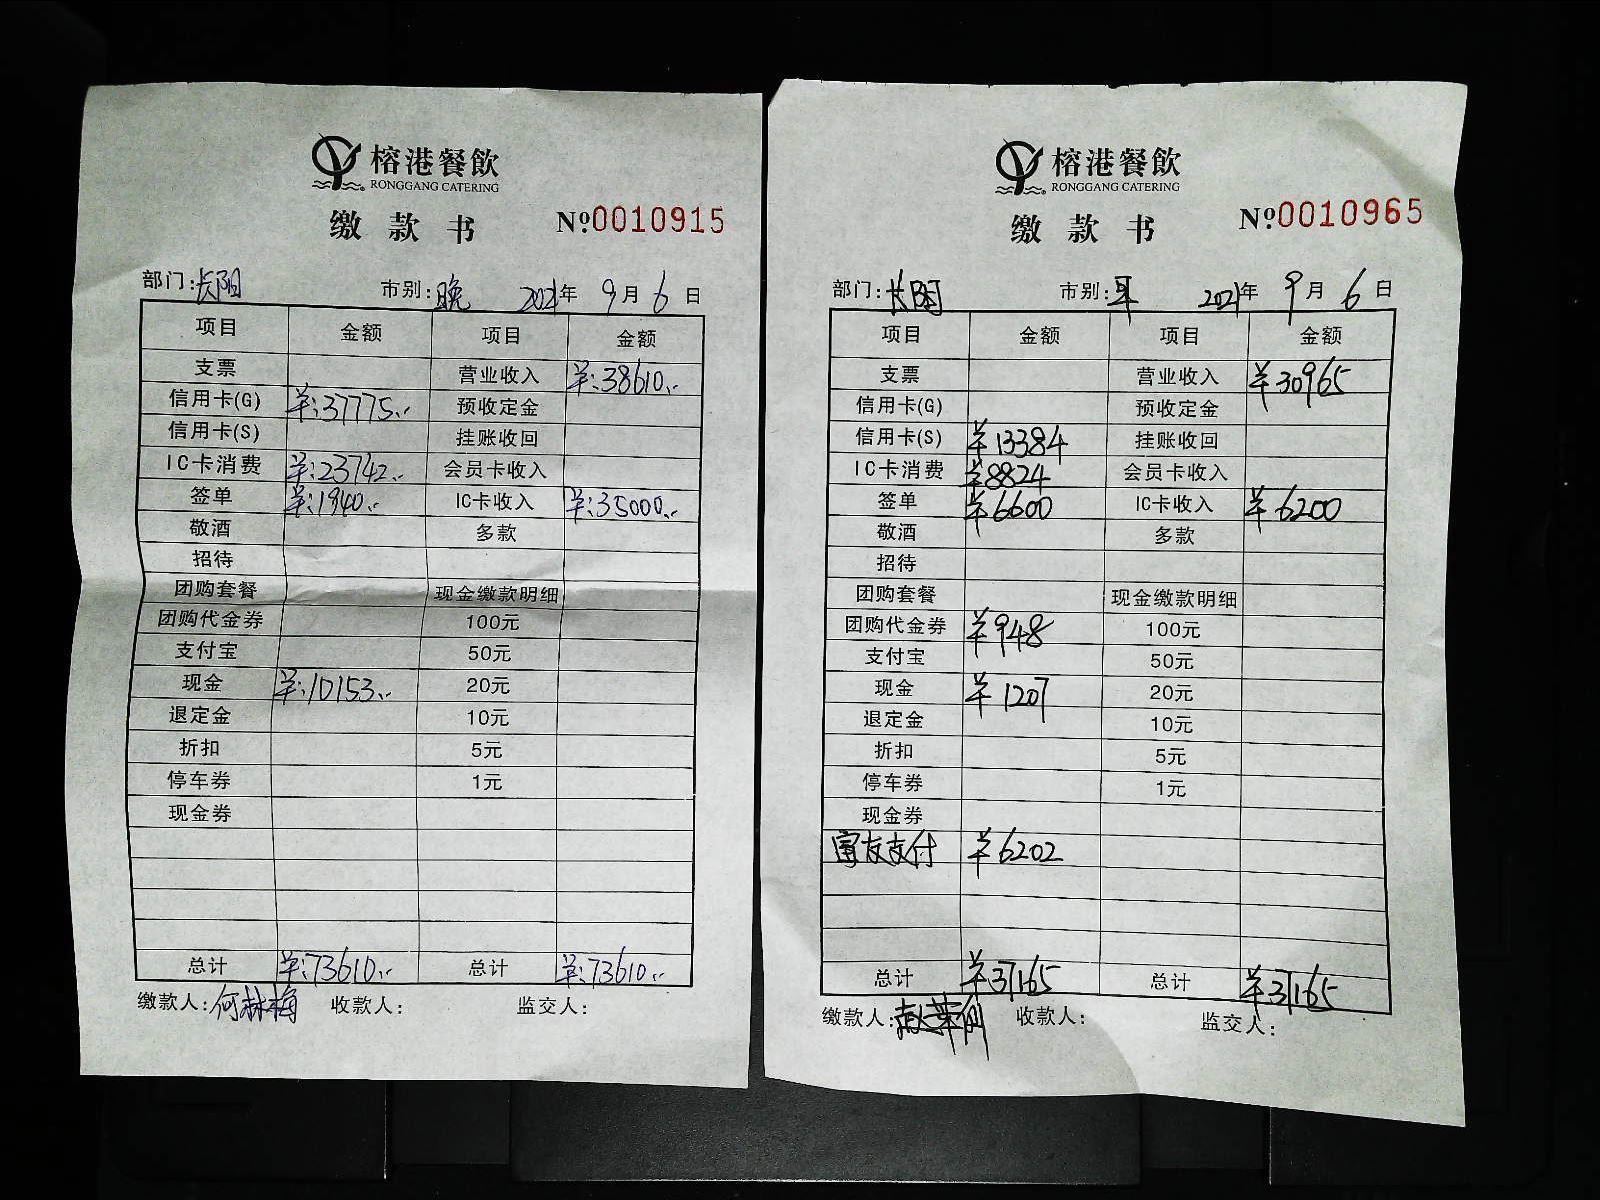 榕港餐飲
RONGGANG CATERING
缴款书 №0010915
部门:长阳 市别:晚 2021年9月6日
项目 金额 项目 金额
支票 营业收入 ¥:38610.-
信用卡(G) ¥:37775.- 预收定金
信用卡(S) 挂账收回
IC卡消费 ¥:23742.- 会员卡收入
签单 ¥:1940.- IC卡收入 ¥:35000.-
敬酒 多款
招待
团购套餐 现金缴款明细
团购代金券 100元
支付宝 50元
现金 ¥:10153.- 20元
退定金 10元
折扣 5元
停车券 1元
现金券
总计 ¥:73610.- 总计 ¥:73610.-
缴款人:何林梅 收款人: 监交人:
榕港餐飲
RONGGANG CATERING
缴款书 №0010965
部门:长阳 市别:早 2021年9月6日
项目 金额 项目 金额
支票 营业收入 ¥30965
信用卡(G) 预收定金
信用卡(S) ¥13384 挂账收回
IC卡消费 ¥8824 会员卡收入
签单 ¥6600 IC卡收入 ¥6200
敬酒 多款
招待
团购套餐 现金缴款明细
团购代金券 ¥948 100元
支付宝 50元
现金 ¥1207 20元
退定金 10元
折扣 5元
停车券 1元
现金券
富友支付 ¥6202
总计 ¥37165 总计 ¥37165
缴款人: 收款人: 监交人: